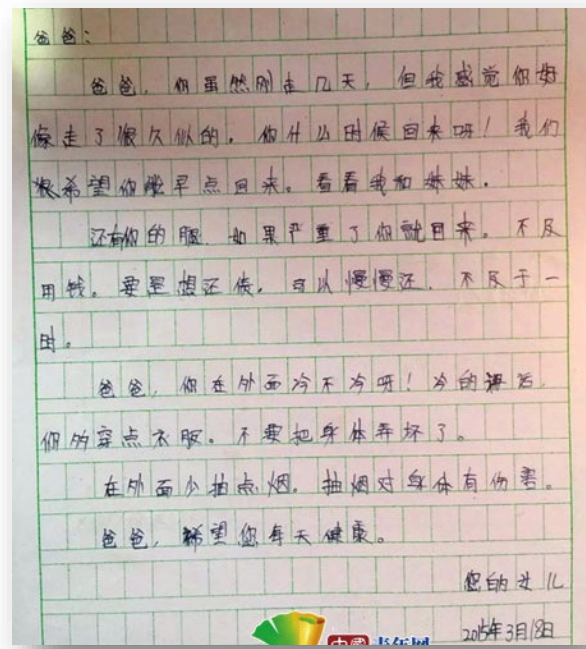 爸爸：
爸爸，你虽然刚走几天，但我感觉你好
像走了很久似的，你什么时候回来呀！我们
很希望你能早点回来。看看我和妹妹。
还有你的腿．如果严重了你就回来。不反
用钱。要是想还债，可以慢慢还．不反于一
时。
爸爸，你在外面冷不冷呀！冷的话，
你多穿点衣服。不要把身体弄坏了。
在外面少抽点烟。抽烟对身体有伤害。
爸爸，希望您每天健康。
您的女儿
2015年3月18日
中國青年网